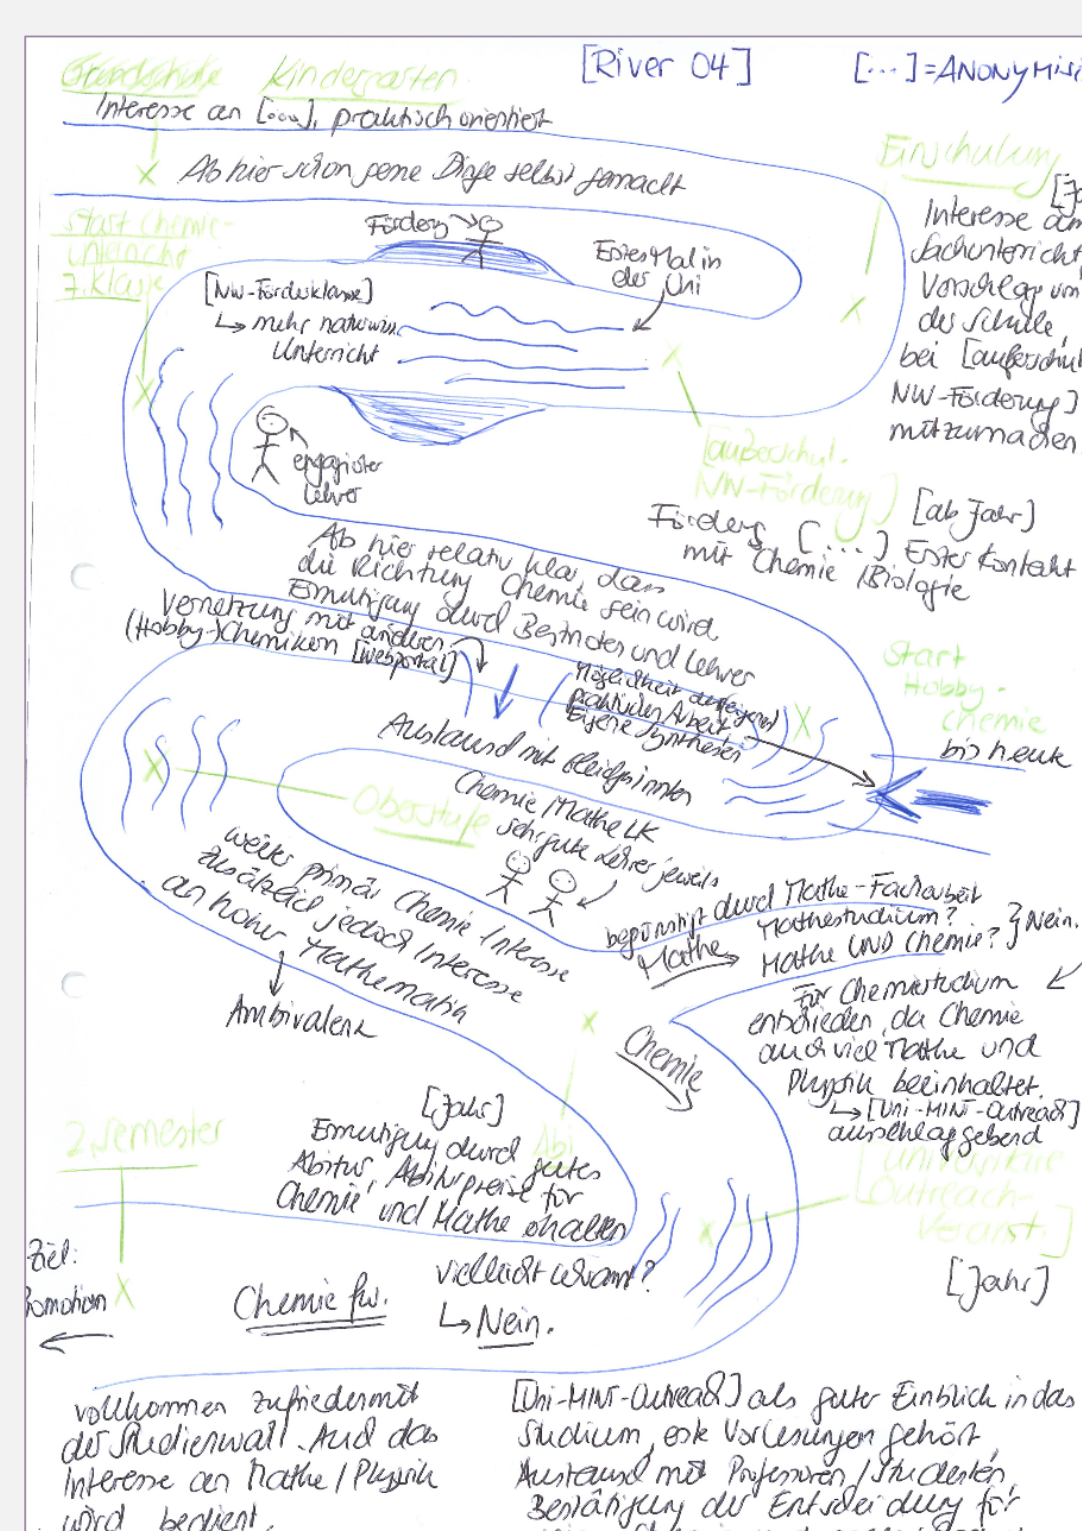 Grundschule Kindergarten
[River 04]
[...] = ANONYMISI
Interesse an [...], praktisch orientiert
Ab hier schon gerne Dinge selbst gemacht
Einschulung
[Ja
Interesse am
Sachunterricht,
Vorschlag von
der Schule,
bei [außerschul
NW-Förderung]
mitzumachen
Start Chemie-
unterricht
7. Klasse
Förderg
Erstes Mal in
der Uni
[NW-Förderklasse]
↳ mehr naturwiss.
Unterricht
engagierter
Lehrer
[außerschul.
NW-Förderung]
[ab Jahr]
Förderg [...] Erster Kontakt
mit Chemie / Biologie
Ab hier relativ klar, dass
die Richtung Chemie sein wird
Ermutigung durch Bestnoten und Lehrer
Vernetzung mit anderen
(Hobby-)Chemikern [Webportal]
Möglichkeit der eigenen
praktischen Arbeit
Eigene Synthesen
Start
Hobby-
chemie
bis heute
Austausch mit Gleichgesinnten
Oberstufe
Chemie / Mathe LK
sehr gute Lehrer jeweils
weiter primär Chemie Interesse
zusätzlich jedoch Interesse
an hoher Mathematik
Ambivalenz
begünstigt durch Mathe-Facharbeit
Mathe
Mathestudium?
Mathe UND Chemie?
} Nein.
Für Chemiestudium
entschieden, da Chemie
auch viel Mathe und
Physik beinhaltet.
↳ [Uni-MINT-Outreach]
ausschlaggebend
Chemie
Abi
[Jahr]
Ermutigung durch gutes
Abitur, Abiturpreise für
Chemie und Mathe erhalten
[Universitäre
Outreach-
Veranst.]
[Jahr]
2. Semester
Ziel:
Promotion
Chemie fw.
vielleicht Lehramt?
↳ Nein.
vollkommen zufrieden mit
der Studienwahl. Auch das
Interesse an Mathe / Physik
wird bedient.
[Uni-MINT-Outreach] als guter Einblick in das
Studium, erste Vorlesungen gehört,
Austausch mit Professoren / Studenten,
Bestätigung der Entscheidung für